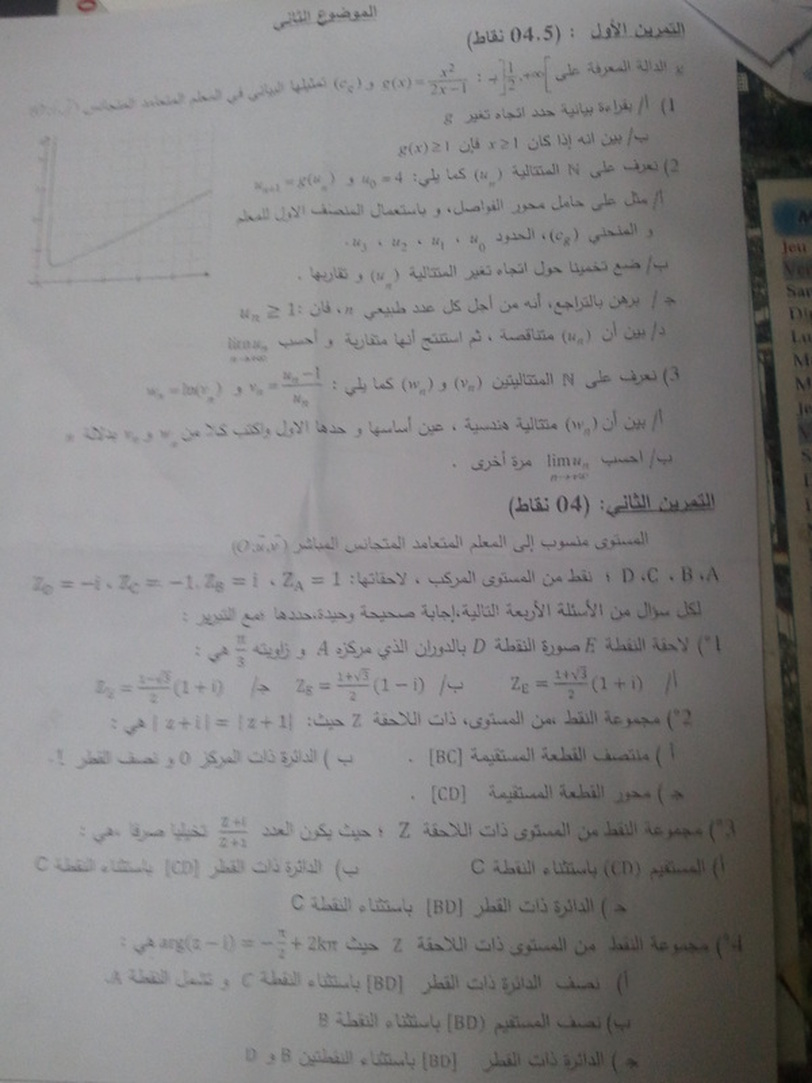 الموضوع الثاني
التمرين الأول : (04.5 نقاط)
g الدالة المعرفة على ]1/2, +∞[ : g(x) = x²/(2x−1) و (c_g) تمثيلها البياني في المعلم المتعامد المتجانس
1) أ/ بقراءة بيانية حدد اتجاه تغير g
ب/ بين انه إذا كان x ≥ 1 فإن g(x) ≥ 1
2) نعرف على N المتتالية (u_n) كما يلي: u_0 = 4 و u_{n+1} = g(u_n)
أ/ مثل على حامل محور الفواصل، و باستعمال المنصف الاول للمعلم
و المنحني (c_g)، الحدود u_0 ، u_1 ، u_2 ، u_3.
ب/ ضع تخمينا حول اتجاه تغير المتتالية (u_n) و تقاربها .
ج/ برهن بالتراجع، أنه من أجل كل عدد طبيعي n، فان : u_n ≥ 1
د/ بين أن (u_n) متناقصة ، ثم استنتج أنها متقاربة و أحسب lim u_n n→+∞
3) نعرف على N المتتاليتين (v_n) و (w_n) كما يلي : v_n = (u_n − 1)/u_n و w_n = ln(v_n)
أ/ بين أن (w_n) متتالية هندسية ، عين أساسها و حدها الاول واكتب كلا من w_n و v_n بدلالة n
ب/ احسب lim u_n n→+∞ مرة أخرى .
التمرين الثاني: (04 نقاط)
المستوى منسوب إلى المعلم المتعامد المتجانس المباشر (O, u, v)
D ، C ، B ، A ؛ نقط من المستوى المركب ، لاحقاتها: Z_A = 1 ، Z_B = i ، Z_C = −1 ، Z_D = −i
لكل سؤال من الأسئلة الأربعة التالية،إجابة صحيحة وحيدة،حددها ،مع التبرير :
1°) لاحقة النقطة E صورة النقطة D بالدوران الذي مركزه A و زاويته π/3 هي :
أ/ Z_E = (1+√3)/2 (1 + i) ب/ Z_E = (1+√3)/2 (1 − i) ج/ Z_E = (1−√3)/2 (1 + i)
2°) مجموعة النقط ،من المستوى، ذات اللاحقة Z حيث: |z + i| = |z + 1| هي :
أ ) منتصف القطعة المستقيمة [BC] . ب ) الدائرة ذات المركز O و نصف القطر 1.
ج ) محور القطعة المستقيمة [CD] .
3°) مجموعة النقط من المستوى ذات اللاحقة Z ؛ حيث يكون العدد (Z+i)/(Z+1) تخيليا صرفا ،هي :
أ) المستقيم (CD) باستثناء النقطة C ب) الدائرة ذات القطر [CD] باستثناء النقطة C
ج ) الدائرة ذات القطر [BD] باستثناء النقطة C
4°) مجموعة النقط من المستوى ذات اللاحقة Z حيث arg(z − i) = −π/2 + 2kπ هي :
أ) نصف الدائرة ذات القطر [BD] باستثناء النقطة C و تشمل النقطة A.
ب) نصف المستقيم [BD) باستثناء النقطة B
ج ) الدائرة ذات القطر [BD] باستثناء النقطتين B و D